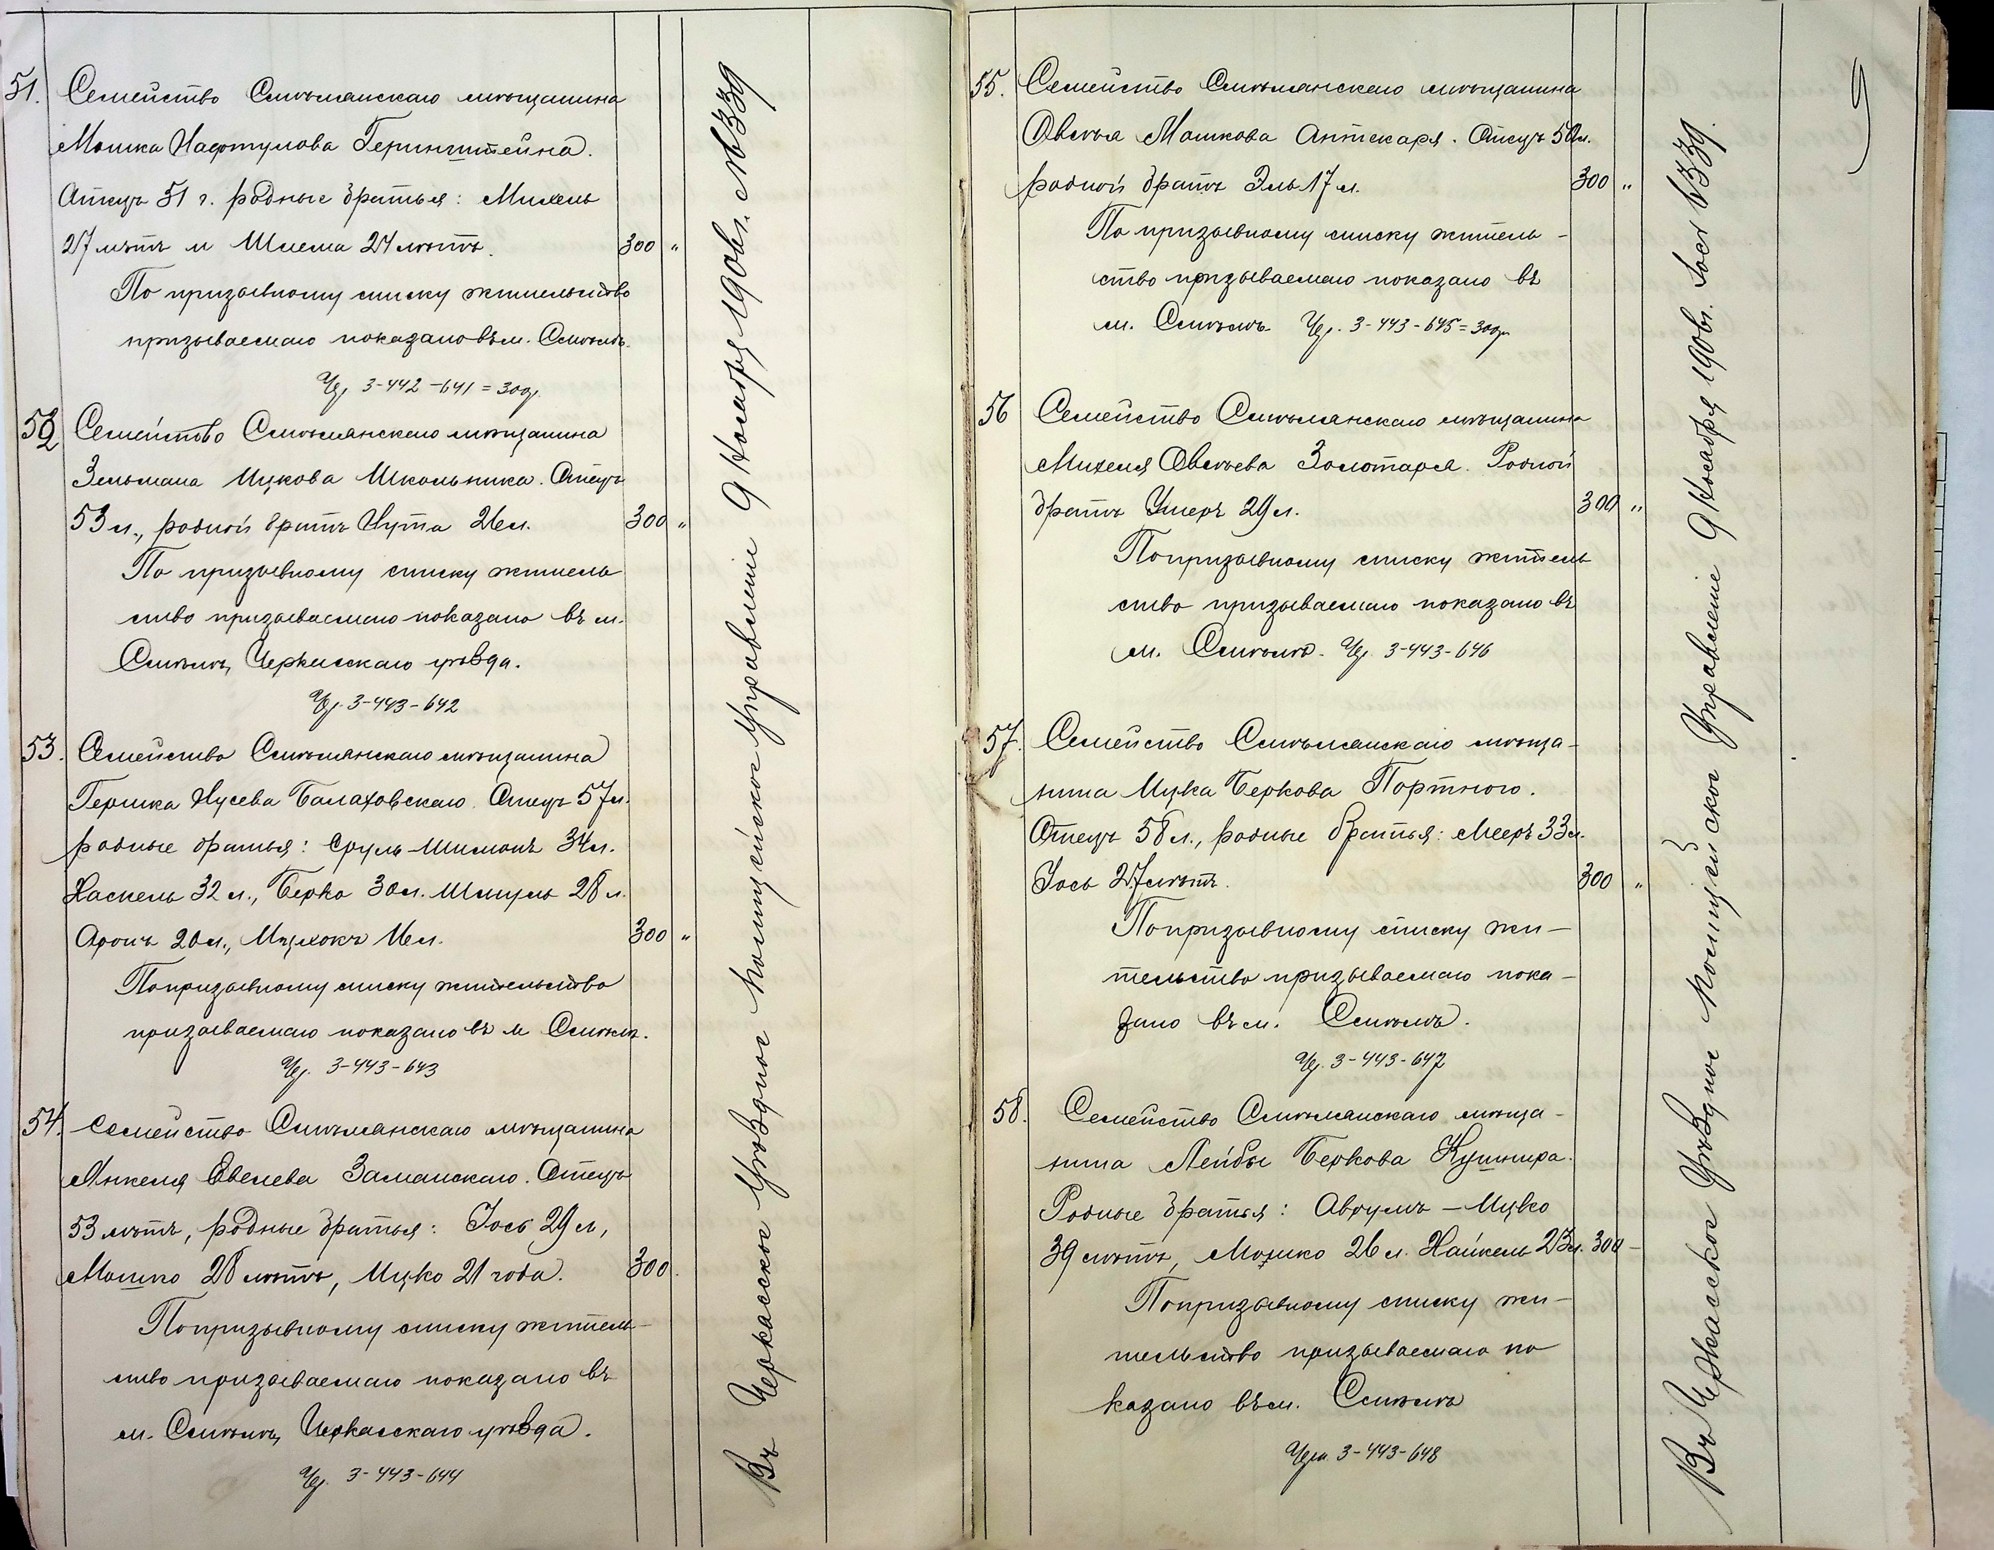 51. Семейство Смѣлянскаго мѣщанина
Мошка Нафтулова Геринштейна.
Отецъ 51 г. родные братья: Михель
27 лѣтъ и Шлема 24 лѣтъ. 300 "
По призывному списку жительство
призываемаго показано въ м. Смѣлѣ.
Чер. 3-442-641 = 300р.
52 Семейство Смѣлянскаго мѣщанина
Зельмана Ицкова Школьника. Отецъ
53 л., родной братъ Нута 26 л. 300 "
По призывному списку житель
ство призываемаго показано въ м.
Смѣлѣ, Черкасскаго уѣзда.
Чер. 3-443-642
53. Семейство Смѣлянскаго мѣщанина
Гершка Нусева Балаховскаго. Отецъ 57 л.
родные братья: Сруль-Шимонъ 34 л.
Хаскель 32 л., Берко 30 л. Шмуль 28 л.
Аронъ 20 л., Ицхокъ 16 л. 300 "
По призывному списку жительство
призываемаго показано въ м Смѣлѣ.
Чер. 3-443-643
54. Семейство Смѣлянскаго мѣщанина
Янкеля Эвелева Заманскаго. Отецъ
53 лѣтъ, родные братья: Іось 29 л,
Мошко 28 лѣтъ, Ицко 21 года. 300.
По призывному списку житель-
ство призываемаго показано въ
м. Смѣлѣ, Черкасскаго уѣзда.
Чер. 3-443-644
Въ Черкасское Уѣздное Полицейское Управленіе 9 Ноября 190 г. №
9
55. Семейство Смѣлянскаго мѣщанина
Овсѣя Мошкова Аптекаря. Отецъ 50 л.
родной братъ Эль 17 л. 300 "
По призывному списку житель-
ство призываемаго показано въ
м. Смѣлѣ. Чер. 3-443-645 = 300р
56 Семейство Смѣлянскаго мѣщанина
Михеля Овсѣева Золотаря. Родной
братъ Ушеръ 29 л. 300 "
По призывному списку житель
ство призываемаго показано въ
м. Смѣлѣ. Чер. 3-443-646
57. Семейство Смѣлянскаго мѣща-
нина Ицка Беркова Портного.
Отецъ 58 л., родные братья: Мееръ 33 л.
Іось 27 лѣтъ. 300 "
По призывному списку жи-
тельство призываемаго пока-
зано въ м. Смѣлѣ.
Чер. 3-443-647
58. Семейство Смѣлянскаго мѣща-
нина Лейбы Беркова Кушнира.
Родные братья: Аврумъ-Ицко
39 лѣтъ, Мошко 26 л. Хайкель 23 л. 300-
По призывному списку жи-
тельство призываемаго по
казано въ м. Смѣлѣ
Черк. 3-443-648
Въ Черкасское Уѣздное Полицейское Управленіе 9 Ноября 190 г.